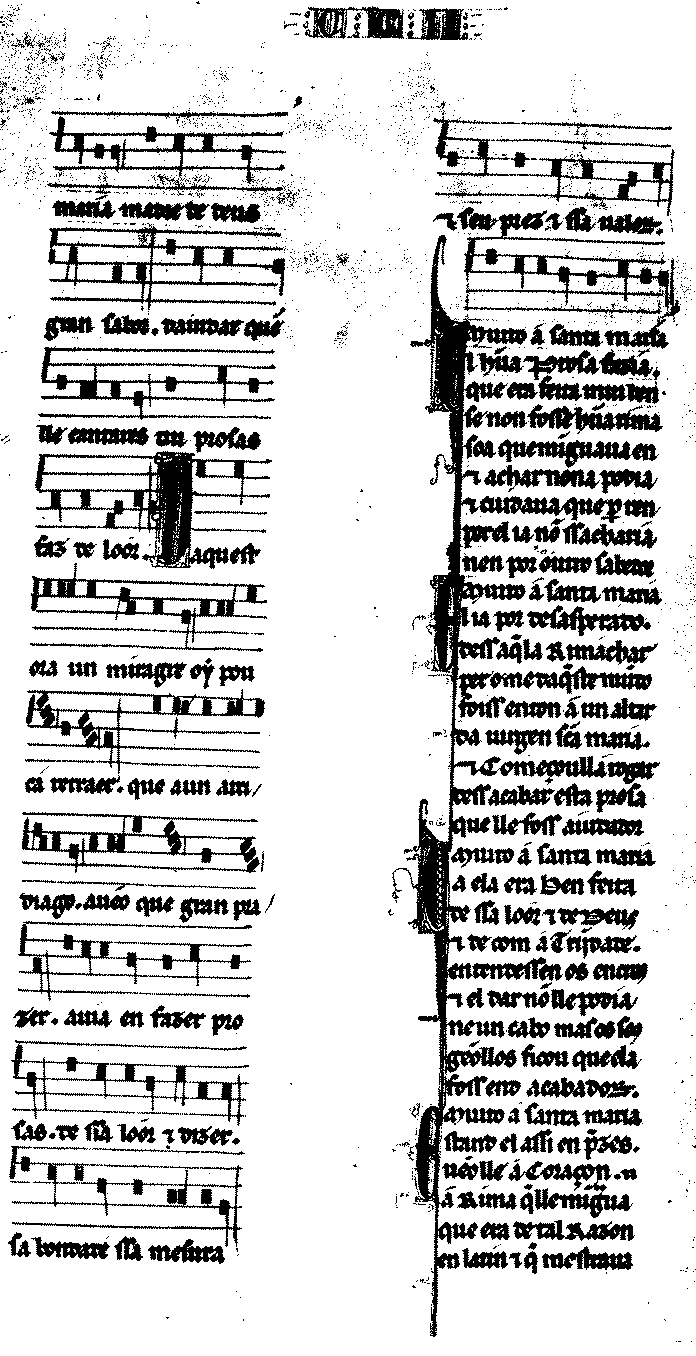 maria madre de deus
gran sabor. daiudar quẽ
lle cantares ou prosas
faz de loor. aquest
ora un miragre oý pou
ca retraer. que aun arci
diago. aueo que gran pra
zer. auia en fazer pro
sas. de ssa loor ⁊ dizer.
sa bondade ssa mesura
⁊ seu prez ⁊ ssa ualor.
Muito á santa maria
hũa prosa fazia.
que era feita muit ben
se non fosse hũa rima
soa que minguaua en
⁊ achar nona podia
⁊ cuidaua que per ren
per el ia nõ ssacharia
nen por outro sabedor
Muito á santa maria
ia por desasperado.
dess aq̃la Rimachar
per ome daq̃ste muito
foiss enton á un altar
da uirgen sc̃a maria.
⁊ Começoulla rogar
dess acabar esta prosa
que lle foss aiudador
Muito á santa maria
á ela era ben feita
de ssa loor ⁊ de Deus
⁊ de com á Tridade.
ententessen os encreos
⁊ el dar nõ lle podia
neun cabo mas os seos
geollos ficou que ela
foss end acabador.
Muito á santa maria
stand el assi en pr̃zes.
uẽolle á Coraçon.
á Rima q̃lle mingua
que era de tal Razon
en latin ⁊ q̃ mostraua